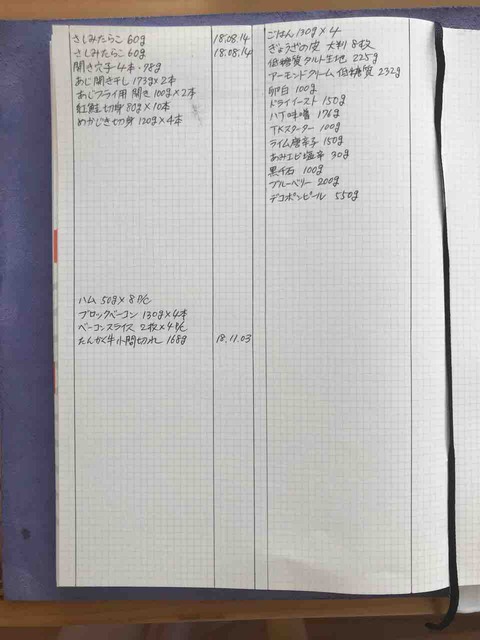 さしみたらこ 60g 18.08.14
さしみたらこ 60g 18.08.14
開き穴子 4本・98g
あじ開き干し 173g×2本
あじフライ用 開き 100g×2本
紅鮭切身 80g×10本
めかじき切身 120g×4本
ハム 50g×8パC
ブロックベーコン 130g×4本
ベーコンスライス 2枚×4パC
たんかく牛小間切れ 168g 18.11.03
ごはん 130g×4
ぎょうざの皮 大判 8枚
低糖質 タルト生地 225g
アーモンドクリーム 低糖質 232g
卵白 100g
ドライイースト 150g
八丁味噌 176g
TKスターター 100g
ライム唐辛子 150g
あみエビ塩辛 30g
黒千石 100g
ブルーベリー 200g
デコポンピール 550g